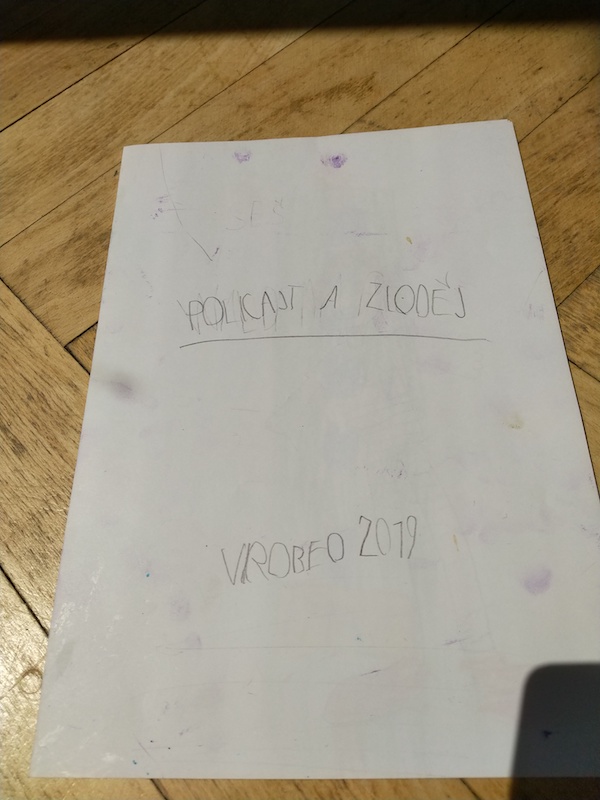 POLICAJT A ZLODĚJ
VIROBEO 2019